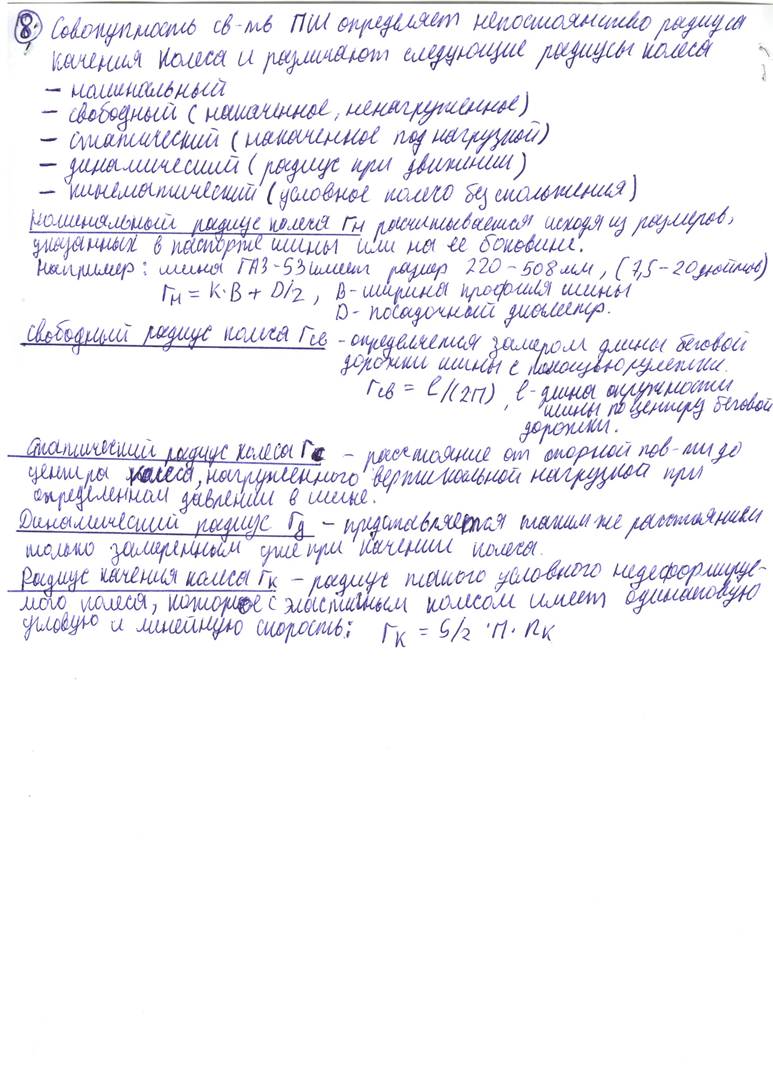 8. Совокупность св-тв ПШ определяет непостоянство радиуса
качения колеса и различают следующие радиусы колеса
– номинальный
– свободный (накаченное, ненагруженное)
– статический (накаченное под нагрузкой)
– динамический (радиус при движении)
– кинематический (условное колесо без скольжения)
Номинальный радиус колеса rн расчитывается исходя из размеров,
указанных в паспорте шины или на ее боковине.
Например: шина ГАЗ-53 имеет размер 220-508 мм, (7,5-20 дюймов)
rн = K·B + D/2, B-ширина профиля шины
D- посадочный диаметр.
Свободный радиус колеса rсв - определяется замером длины беговой
дорожки шины с помощью рулетки.
rсв = l/(2П), l-длина окружности
шины по центру беговой
дорожки.
Статический радиус колеса rс – расстояние от опорной пов-ти до
центра колеса, нагруженного вертикальной нагрузкой при
определенном давлении в шине.
Динамический радиус rд – представляется таким же расстоянием
только замеренным уже при качении колеса.
Радиус качения колеса rк – радиус такого условного недеформируе-
мого колеса, которое с эластичным колесом имеет одинаковую
угловую и линейную скорость: rк = S/2·П·nк